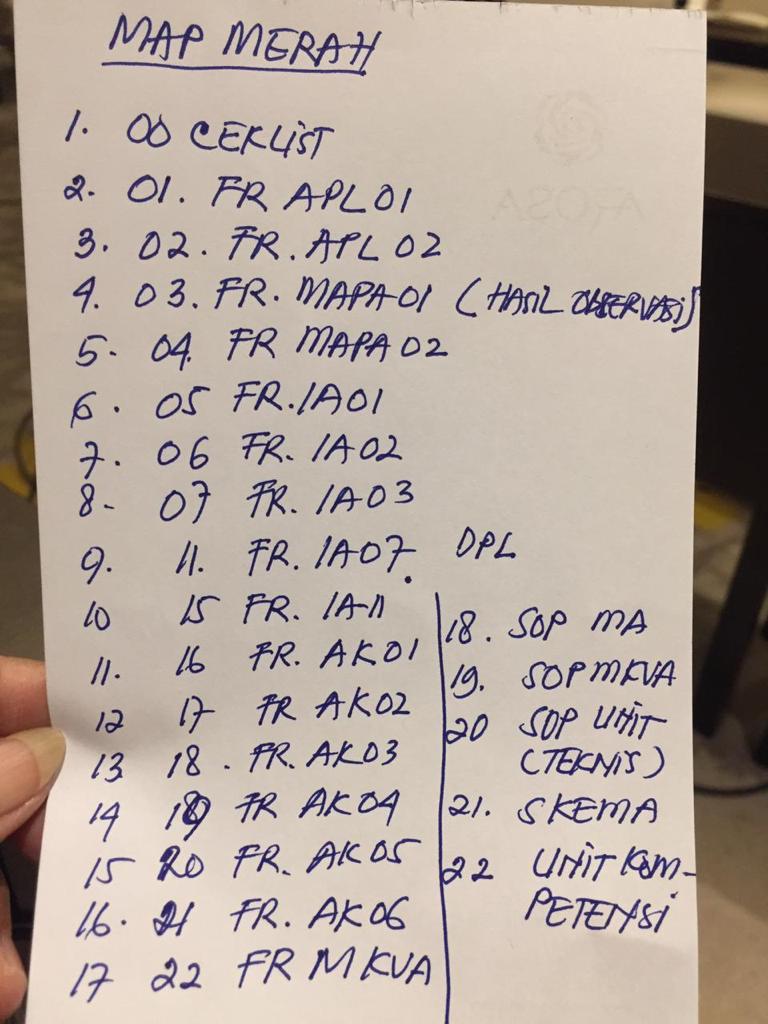 MAP MERAH
1. 00 CEKLIST
2. 01. FR APL01
3. 02. FR. APL 02
4. 03. FR. MAPA01 (HASIL OBSERVASI)
5. 04. FR MAPA 02
6. 05 FR. IA01
7. 06 FR. IA02
8- 07 FR. IA03
9. 11. FR. IA07. DPL
10 15 FR. IA11
11. 16 FR. AK01
12 17 FR AK02
13 18. FR. AK03
14 19 FR AK04
15 20 FR. AK05
16. 21 FR. AK06
17 22 FR MKVA
18. SOP MA
19. SOP MKVA
20 SOP UNIT
(TEKNIS)
21. SKEMA
22 UNIT KOM-
PETENSI
AROSA